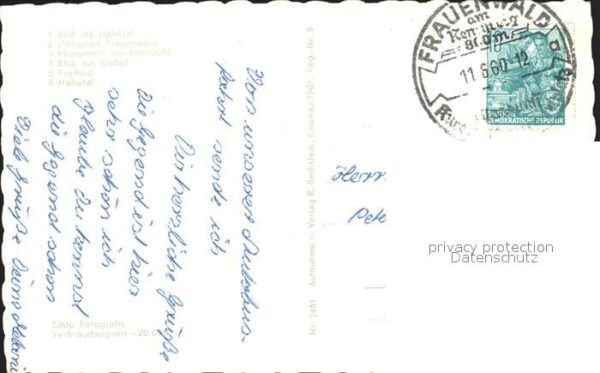 1 Blick ins Nahetal
2 Höhenort Frauenwald
3 Monument am
4 Blick auf Gabel
5 Freibad
6 Nahetal
Von unserer Autobus-
fahrt sende ich
Dir herzliche Grüße
die Gegend ist hier
sehr schön ich
glaube du kennst
die Gegend schon
Viele Grüße Deine
Echte Fotografie
Verbraucherpreis -.20 D
Nr. 2461 Aufnahme u. Verlag R. Bechstein, Ilmenau/Thür. Reg.-Nr. 9
FRAUENWALD
am
Rennsteig
11.6.60-12
DEUTSCHE
DEMOKRATISCHE REPUBLIK
Herrn
Pete
privacy protection
Datenschutz